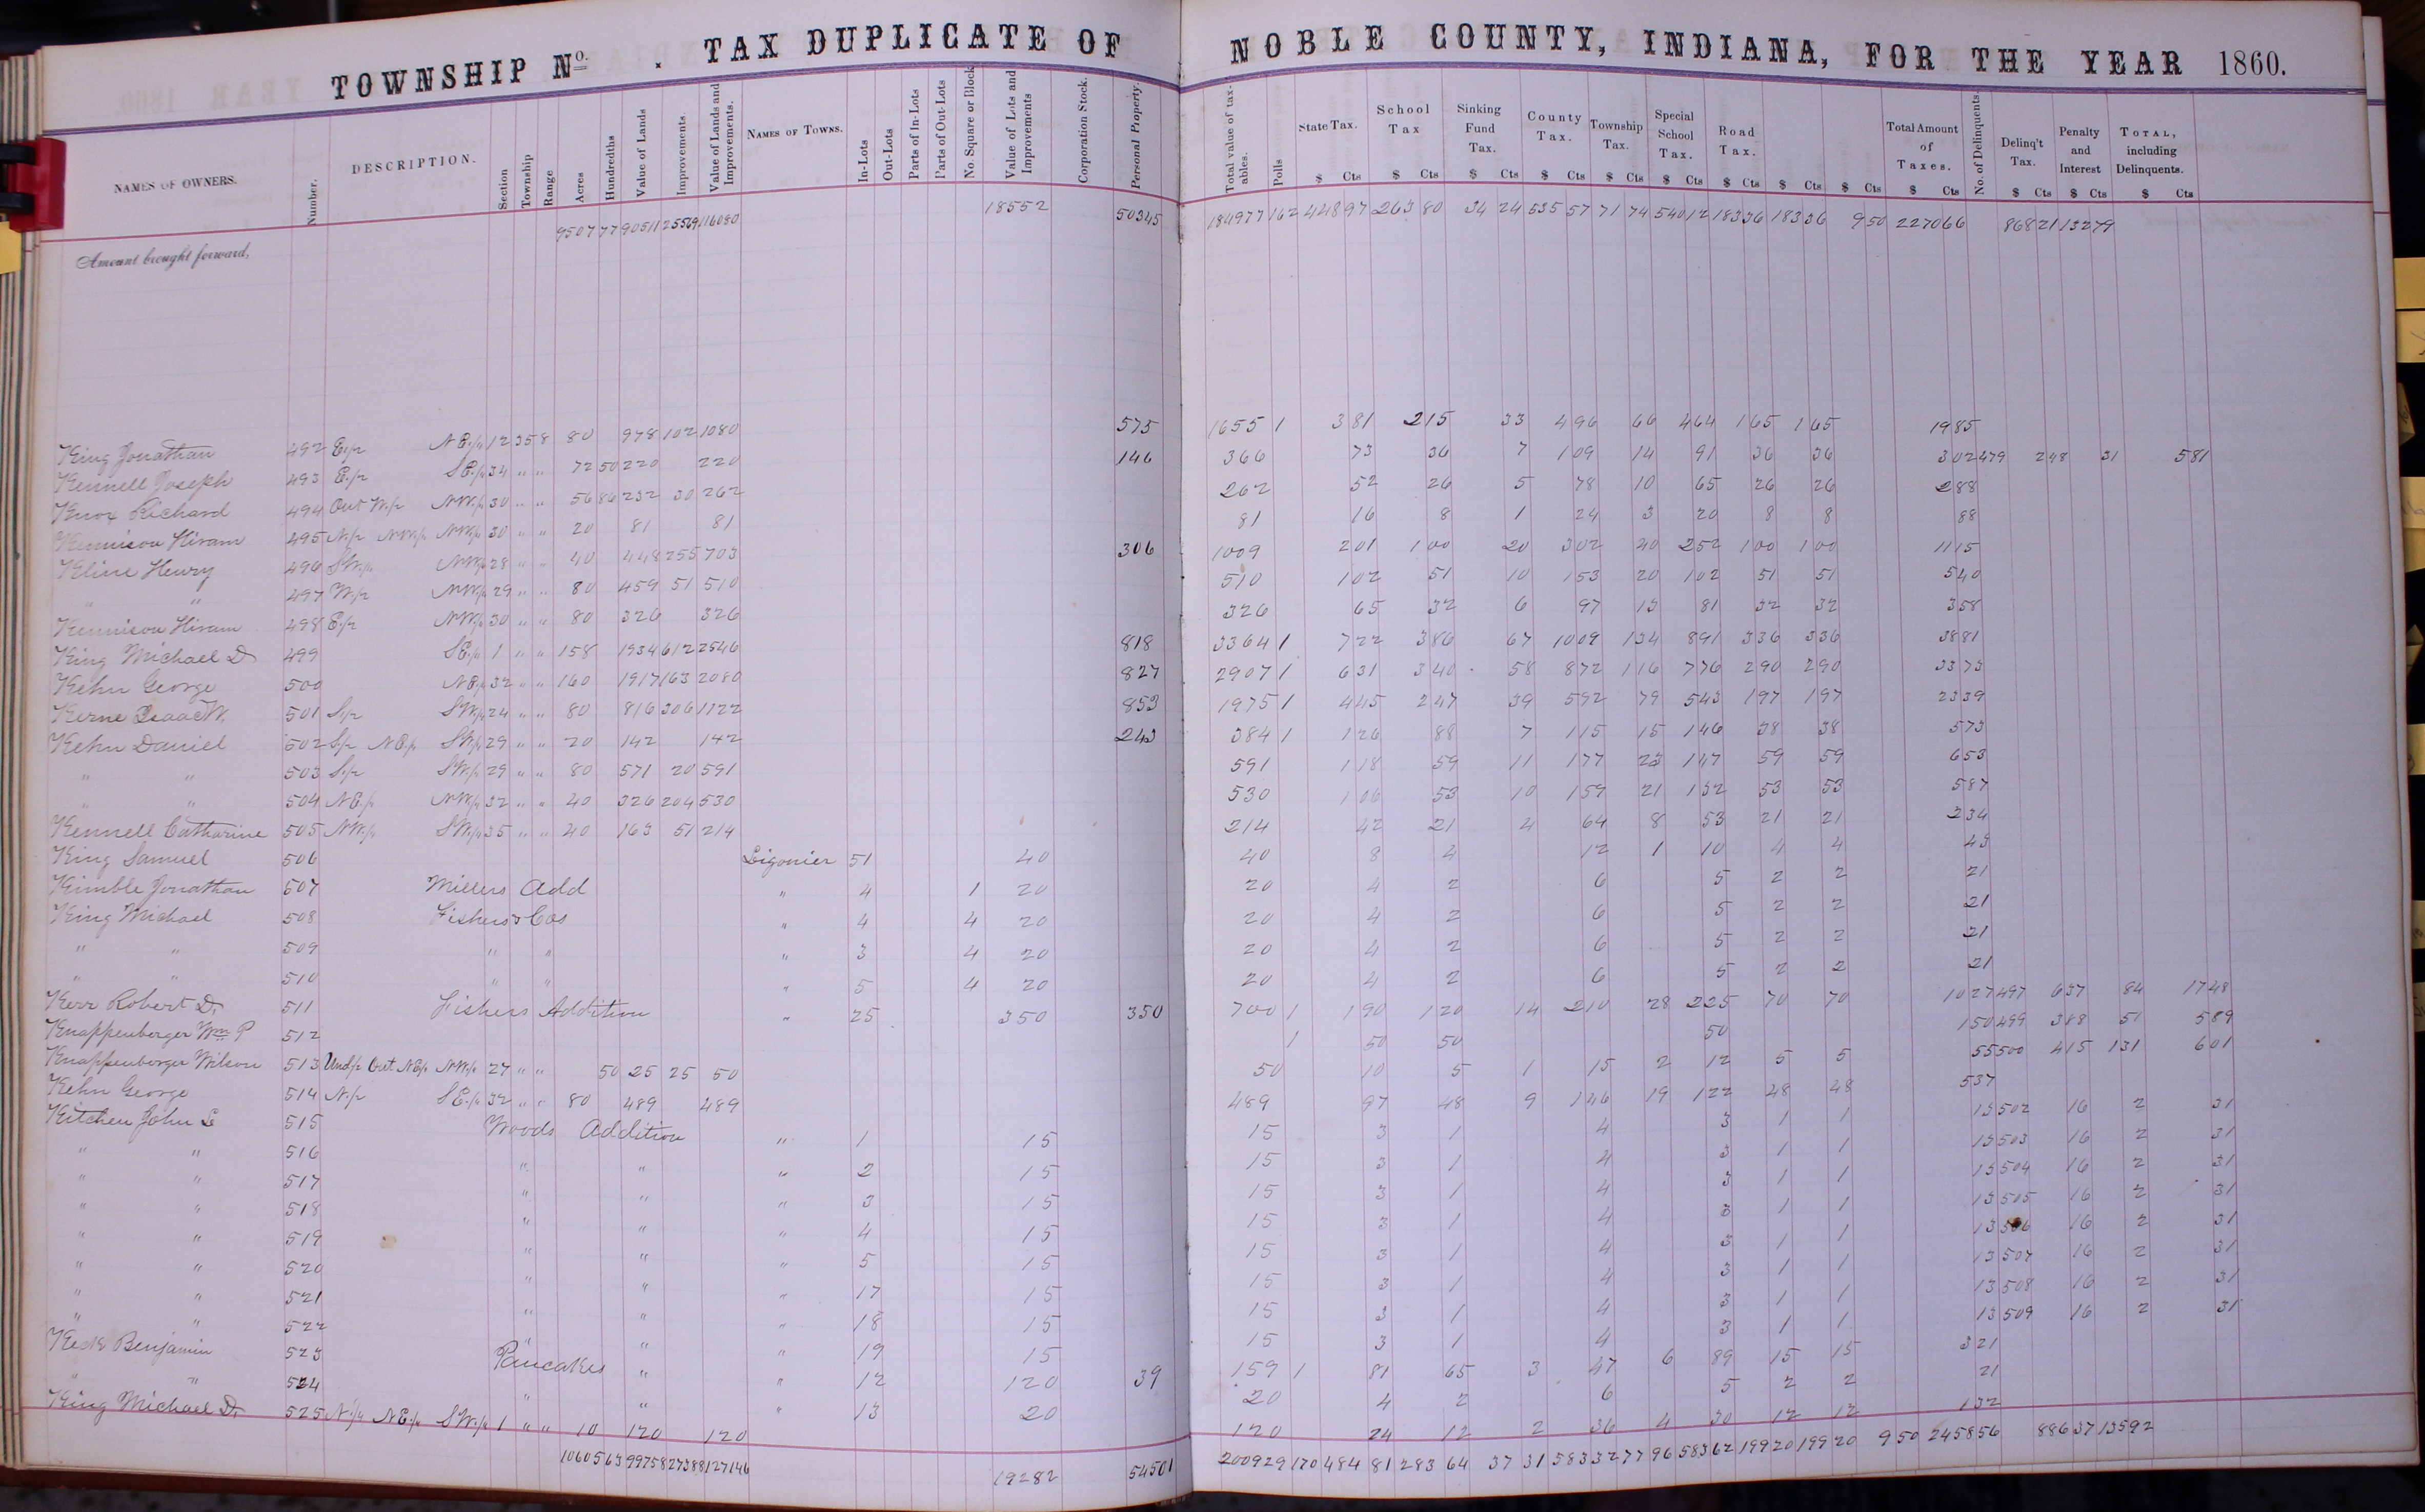 TOWNSHIP No. . TAX DUPLICATE OF NOBLE COUNTY, INDIANA, FOR THE YEAR 1860.
NAMES OF OWNERS. Number. DESCRIPTION. Section Township Range Acres Hundredths Value of Lands Improvements. Value of Lands and Improvements. NAMES OF TOWNS. In-Lots Out-Lots Parts of In-Lots Parts of Out-Lots No. Square or Block Value of Lots and Improvements Corporation Stock. Personal Property. Total value of taxables. Polls State Tax. School Tax Sinking Fund Tax. County Tax. Township Tax. Special School Tax. Road Tax. Total Amount of Taxes. No. of Delinquents. Delinq't Tax. Penalty and Interest TOTAL, including Delinquents.
$ Cts $ Cts $ Cts $ Cts $ Cts $ Cts $ Cts $ Cts $ Cts $ Cts $ Cts $ Cts $ Cts
Amount brought forward, 9507 77 90511 25569 116080 18552 50345 184977 162 448 97 263 80 34 24 535 57 71 74 540 12 183 36 183 36 9 50 2270 66 868 21 132 79
King Jonathan 492 E½ N E¼ 12 35 8 80 978 102 1080 575 1655 1 3 81 2 15 33 4 96 66 4 64 1 65 1 65 19 85
Kennell Joseph 493 E½ S E¼ 34 " " 72 50 220 220 146 366 73 36 7 1 09 14 91 36 36 3 02 479 2 48 31 5 81
Knox Richard 494 Out W½ NW¼ 30 " " 56 86 232 30 262 262 52 26 5 78 10 65 26 26 2 88
Kennison Hiram 495 N½ NW¼ NW¼ 30 " " 20 81 81 81 16 8 1 24 3 20 8 8 88
Kline Henry 496 SW¼ NW¼ 28 " " 40 448 255 703 306 1009 2 01 1 00 20 3 02 40 2 52 1 00 1 00 11 15
" " 497 W½ NW¼ 29 " " 80 459 51 510 510 1 02 51 10 1 53 20 1 02 51 51 5 40
Kennison Hiram 498 E½ NW¼ 30 " " 80 326 326 326 65 32 6 97 13 81 32 32 3 58
King Michael D 499 S E¼ 1 " " 158 1934 612 2546 818 3364 1 7 22 3 86 67 10 09 1 34 8 91 3 36 3 36 38 81
Kehn George 500 N E¼ 32 " " 160 1917 163 2080 827 2907 1 6 31 3 40 58 8 72 1 16 7 76 2 90 2 90 33 73
Kerne Isaac W. 501 S½ SW¼ 24 " " 80 816 306 1122 853 1975 1 4 45 2 47 39 5 92 79 5 43 1 97 1 97 23 39
Kehn Daniel 502 S½ N E¼ SW¼ 29 " " 20 142 142 243 384 1 1 26 88 7 1 15 15 1 46 38 38 5 73
" " 503 S½ SW¼ 29 " " 80 571 20 591 591 1 18 59 11 1 77 23 1 47 59 59 6 53
" " 504 N E¼ NW¼ 32 " " 40 326 204 530 530 1 06 53 10 1 59 21 1 32 53 53 5 87
Kennell Catharine 505 NW¼ SW¼ 35 " " 40 163 51 214 214 42 21 4 64 8 53 21 21 2 34
King Samuel 506 Ligonier 51 40 40 8 4 12 1 10 4 4 43
Kimble Jonathan 507 Millers Add " 4 1 20 20 4 2 6 5 2 2 21
King Michael 508 Fishers & Cos " 4 4 20 20 4 2 6 5 2 2 21
" " 509 " " " 3 4 20 20 4 2 6 5 2 2 21
" " 510 " " " 5 4 20 20 4 2 6 5 2 2 21
Kerr Robert D. 511 Fishers Addition " 25 350 350 700 1 1 90 1 20 14 2 10 28 2 25 70 70 10 27 497 6 37 84 17 48
Knappenberger Wm P 512 1 50 50 50 1 50 499 3 88 51 5 89
Knappenberger Wilson 513 Und½ Out N E¼ NW¼ 27 " " 50 25 25 50 50 10 5 1 15 2 12 5 5 55 500 4 15 1 31 6 01
Kehn George 514 N½ S E¼ 32 " " 80 489 489 489 97 48 9 1 46 19 1 22 48 48 5 37
Kitchen John S 515 Woods Addition " 1 15 15 3 1 4 3 1 1 13 502 16 2 31
" " 516 " " " 2 15 15 3 1 4 3 1 1 13 503 16 2 31
" " 517 " " " 3 15 15 3 1 4 3 1 1 13 504 16 2 31
" " 518 " " " 4 15 15 3 1 4 3 1 1 13 515 16 2 31
" " 519 " " " 5 15 15 3 1 4 3 1 1 13 506 16 2 31
" " 520 " " " 17 15 15 3 1 4 3 1 1 13 507 16 2 31
" " 521 " " " 18 15 15 3 1 4 3 1 1 13 508 16 2 31
" " 522 " " " 19 15 15 3 1 4 3 1 1 13 509 16 2 31
Benjamin 523 Pancakes " " 12 120 39 159 1 81 65 3 47 6 89 15 15 3 21
" " 524 " " " 13 20 20 4 2 6 5 2 2 21
King Michael D. 525 N½ N E¼ SW¼ 1 " " 10 120 120 120 24 12 2 36 4 30 12 12 1 32
10605 63 99758 27388 127146 19282 54501 200929 170 484 81 283 64 37 31 583 32 77 96 583 62 199 20 199 20 9 50 2458 56 886 37 135 92